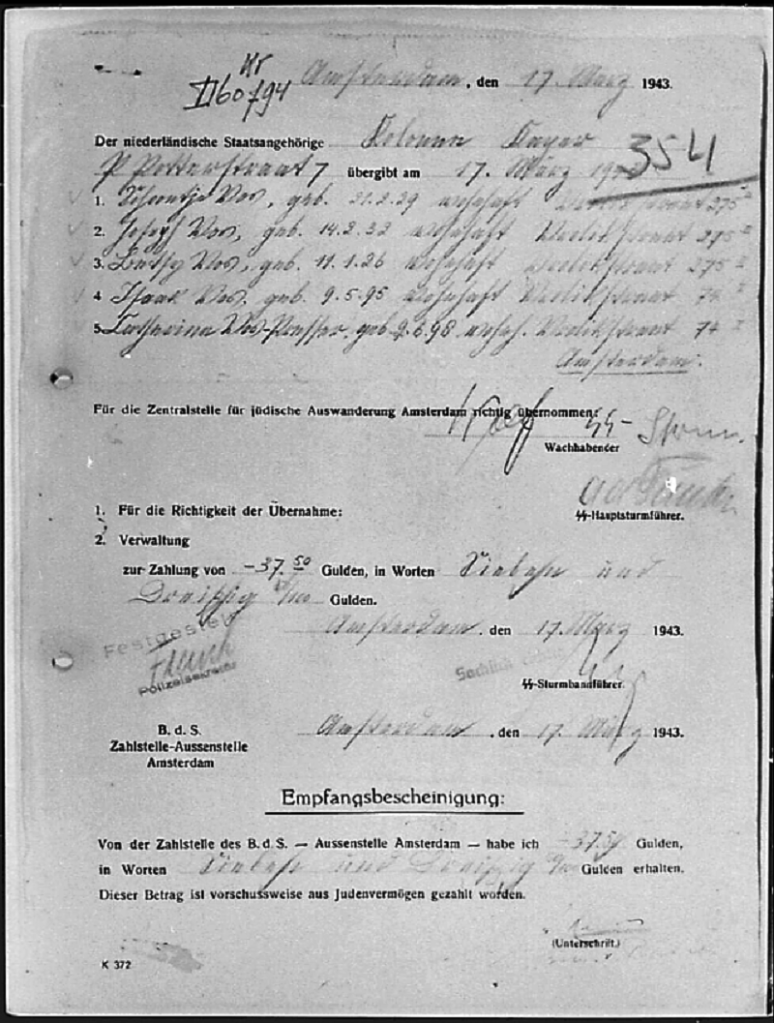 Nr
II 60794
Amsterdam, den 17. März 1943.
Der niederländische Staatsangehörige Kolonne
354
P Potterstraat 7 übergibt am 17. März 19
1. Vos, geb. 21.2.29 wohnhaft 275 II
2. Joseph Vos, geb. 14.2.32 wohnhaft 275 II
3. Betty Vos, geb. 11.1.26 wohnhaft 275 II
4 Isaak Vos, geb. 9.5.95 wohnhaft 74 I
5. Catharina Vos-Presser, geb 2.6.98 wohnh. 74 I
Amsterdam.
Für die Zentralstelle für jüdische Auswanderung Amsterdam richtig übernommen:
SS-Sturm.
Wachhabender
SS-Hauptsturmführer.
1. Für die Richtigkeit der Übernahme:
2. Verwaltung
zur Zahlung von -37.50 Gulden, in Worten Sieben und
Dreißig Gulden.
Amsterdam, den 17. März 1943.
Festgestellt
Polizeisekretär
Sachlich
SS-Sturmbannführer.
B. d. S.
Zahlstelle-Aussenstelle
Amsterdam
Amsterdam, den 17. März 1943.
Empfangsbescheinigung:
Von der Zahlstelle des B. d. S. — Aussenstelle Amsterdam — habe ich -37.50 Gulden,
in Worten Sieben und Dreißig Gulden erhalten.
Dieser Betrag ist vorschussweise aus Judenvermögen gezahlt worden.
(Unterschrift.)
K 372